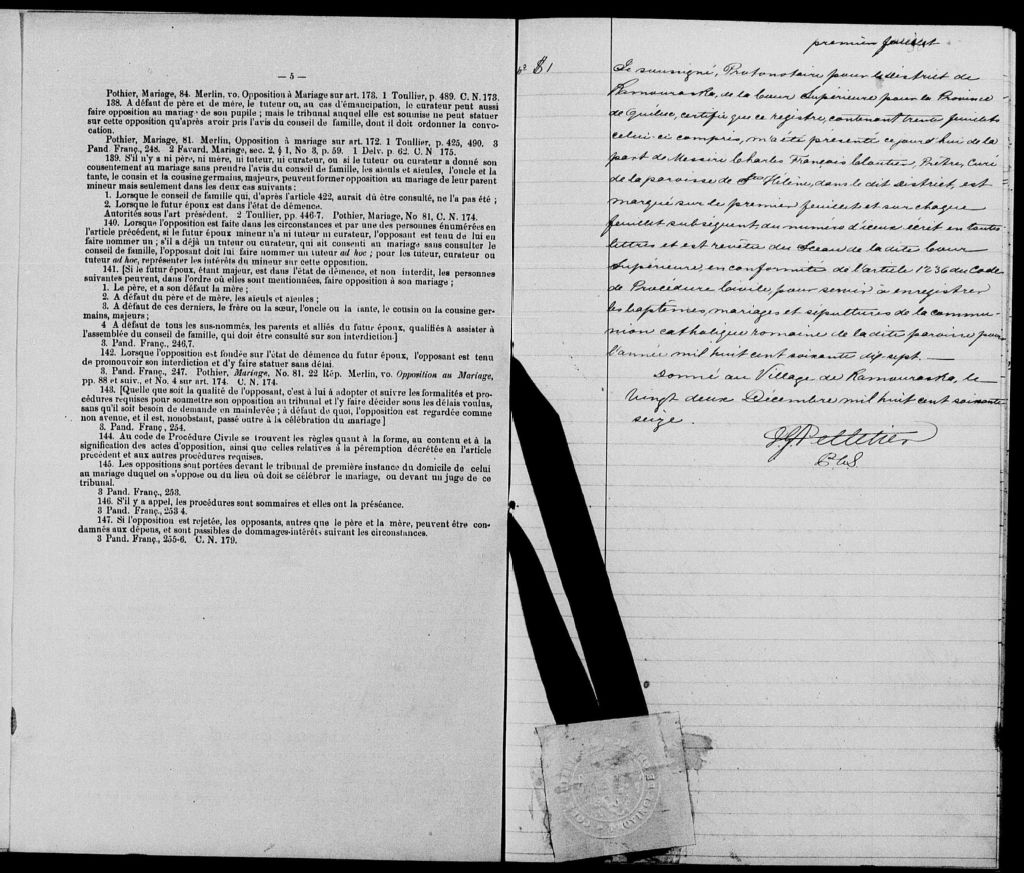 — 5 —
Pothier, Mariage, 84. Merlin, vo. Opposition à Mariage sur art. 173. 1 Toullier, p. 489. C. N. 173.
138. A défaut de père et de mère, le tuteur ou, au cas d'émancipation, le curateur peut aussi
faire opposition au mariage de son pupile ; mais le tribunal auquel elle est soumise ne peut statuer
sur cette opposition qu'après avoir pris l'avis du conseil de famille, dont il doit ordonner la convo-
cation.
Pothier, Mariage, 81. Merlin, Opposition à mariage sur art. 172. 1 Toullier, p. 425, 490. 3
Pand. Franç., 248. 2 Favard. Mariage, sec. 2, § 1, No 3, p. 59. 1 Delv. p 62. C. N 175.
139. S'il n'y a ni père, ni mère, ni tuteur, ni curateur, ou si le tuteur ou curateur a donné son
consentement au mariage sans prendre l'avis du conseil de famille, les aieuls et aieules, l'oncle et la
tante, le cousin et la cousine germains, majeurs, peuvent former opposition au mariage de leur parent
mineur mais seulement dans les deux cas suivants :
1. Lorsque le conseil de famille qui, d'après l'article 422, aurait dû être consulté, ne l'a pas été ;
2. Lorsque le futur époux est dans l'état de démence.
Autorités sous l'art présent. 2 Toullier, pp. 446-7. Pothier, Mariage, No 81, C. N. 174.
140. Lorsque l'opposition est faite dans les circonstances et par une des personnes énumérées en
l'article précédent, si le futur époux mineur n'a ni tuteur ni curateur, l'opposant est tenu de lui en
faire nommer un ; s'il a déjà un tuteur ou curateur, qui ait consenti au mariage sans consulter le
conseil de famille, l'opposant doit lui faire nommer un tuteur ad hoc ; pour les tuteur, curateur ou
tuteur ad hoc, représenter les intérêts du mineur sur cette opposition.
141. [Si le futur époux, étant majeur, est dans l'état de démence, et non interdit, les personnes
suivantes peuvent, dans l'ordre où elles sont mentionnées, faire opposition à son mariage ;
1. Le père, et a son défaut la mère ;
2. A défaut du père et de mère, les aïeuls et aieules ;
3. A défaut de ces derniers, le frère ou la sœur, l'oncle ou la tante, le cousin ou la cousine ger-
mains, majeurs ;
4 A défaut de tous les sus-nommés, les parents et alliés du futur époux, qualifiés à assister à
l'assemblée du conseil de famille, qui doit être consulté sur son interdiction.]
3. Pand. Franç., 246.7.
142. Lorsque l'opposition est fondée sur l'état de démence du futur époux, l'opposant est tenu
de promouvoir son interdiction et d'y faire statuer sans délai.
3. Pand. Franç., 247. Pothier, Mariage, No. 81. 22 Rép. Merlin, vo. Opposition au Mariage,
pp. 88 et suiv., et No. 4 sur art. 174. C. N. 174.
143. [Quelle que soit la qualité de l'opposant, c'est à lui à adopter et suivre les formalités et pro-
cédures requises pour soumettre son opposition au tribunal et l'y faire décider sous les délais voulus,
sans qu'il soit besoin de demande en mainlevée ; à défaut de quoi, l'opposition est regardée comme
non avenue, et il est, nonobstant, passé outre à la célébration du mariage]
3. Pand. Franç., 254.
144. Au code de Procédure Civile se trouvent les règles quant à la forme, au contenu et à la
signification des actes d'opposition, ainsi que celles relatives à la péremption décrétée en l'article
précédent et aux autres procédures requises.
145. Les oppositions sont portées devant le tribunal de première instance du domicile de celui
au mariage duquel on s'oppose ou du lieu où doit se célébrer le mariage, ou devant un juge de ce
tribunal.
3 Pand. Franç., 253.
146. S'il y a appel, les procédures sont sommaires et elles ont la préséance.
3 Pand. Franç., 253 4.
147. Si l'opposition est rejetée, les opposants, autres que le père et la mère, peuvent être con-
damnés aux dépens, et sont passibles de dommages-intérêts suivant les circonstances.
3 Pand. Franç., 255-6. C. N. 179.
premier feuillet
81
Je soussigné, Protonotaire pour le district de
Kamouraska, de la Cour Supérieure pour la Province
de Québec, certifie que ce registre, contenant trente feuillets
celui-ci compris, m'a été présenté ce jourd'hui de la
part de Messire Charles François Cloutier, Prêtre, Curé
de la paroisse de Ste Hélène, dans le dit District, est
marqué sur le premier feuillet et sur chaque
feuillet subséquent du numéro d'iceux écrit en toutes
lettres et est revêtu du Sceau de la dite Cour
Supérieure, en conformité de l'article 1236 du Code
de Procédure Civile, pour servir à enregistrer
les baptêmes, mariages et sépultures de la commu-
nion catholique romaine de la dite paroisse pour
l'année mil huit cent soixante dix sept. —
Donné au Village de Kamouraska, le
Vingt deux Décembre mil huit cent soixante
seize.
Pelletier
P. C. S.